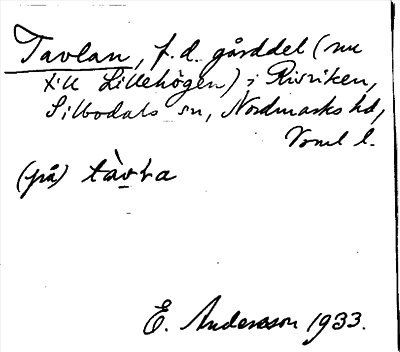 Tavlan, f.d. gårddel (nu
till Lillehögen) i Risviken,
Silbodals sn, Nordmarks hd,
Vrml l.
(på) tàvla
E. Andersson 1933.